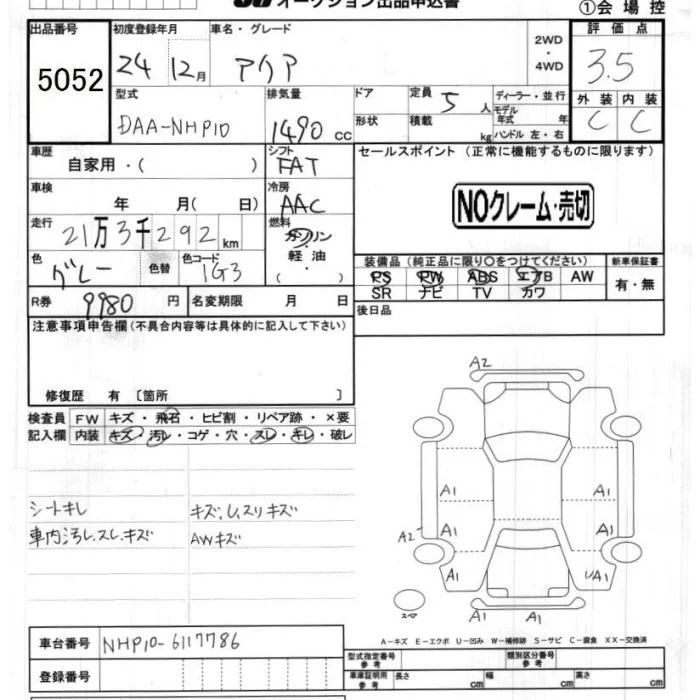 オークション出品申込書
①会場控
出品番号 初度登録年月 車名・グレード 2WD・4WD 評価点
5052 24 12月 アクア 3.5
型式 排気量 ドア 定員 5人 ディーラー・並行 外装 内装
DAA-NHP10 1490 cc 形状 積載 kg モデル年式 年 C C
ハンドル 左・右
車歴 シフト セールスポイント (正常に機能するものに限ります)
自家用・( ) FAT
車検 冷房
年 月( 日) AAC NOクレーム・売切
走行 燃料
21万3千292km ガソリン・軽油・( )
色 色替 色コード 装備品(純正品に限り○をつけてください) 新車保証書
グレー 1G3 PS PW ABS エアB AW 有・無
SR ナビ TV カワ
R券 9980 円 名変期限 月 日 後日品
注意事項申告欄(不具合内容等は具体的に記入して下さい)
修復歴 有 〔箇所 〕
検査員 FW キズ・飛石・ヒビ割・リペア跡・×要
記入欄 内装 キズ・汚レ・コゲ・穴・スレ・キレ・破レ
シートキレ キズ.U.スリキズ
車内汚レ.スレ.キズ AWキズ
A2
A1 A1
A2 A1 A1
A1 UA1
スペ A1 A1
A-キズ E-エクボ U-凹み W-補修跡 S-サビ C-腐食 XX-交換済
車台番号 NHP10-6117786
型式指定番号 参考 類別区分番号 参考
登録番号 車庫証明用 参考 長さ cm 幅 cm 高さ cm